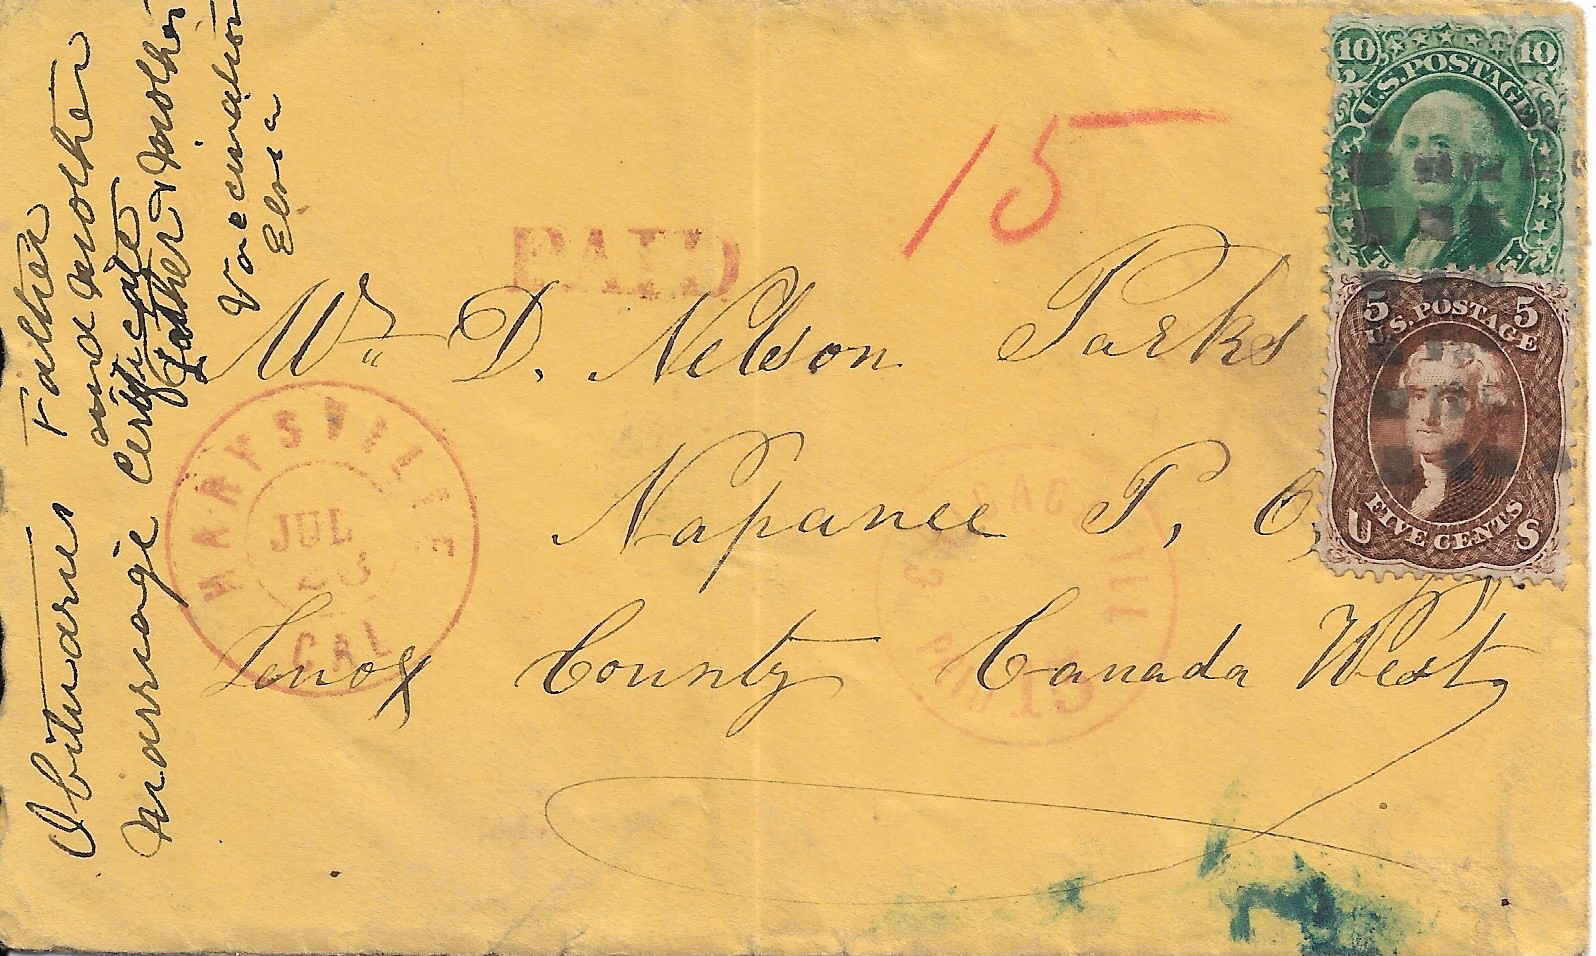 Obituaries Father
and Mother
Marriage Certificate
Father & Mother
Vaccination
Elva
PAID
15
Mr. D. Nelson Parks
Napanee P. O,
Lenox County Canada West,
MARYSVILLE
JUL
CAL
CHICAGO ILL
PAID 15
10 10
U.S. POSTAGE
5 5
U.S. POSTAGE
U FIVE CENTS S